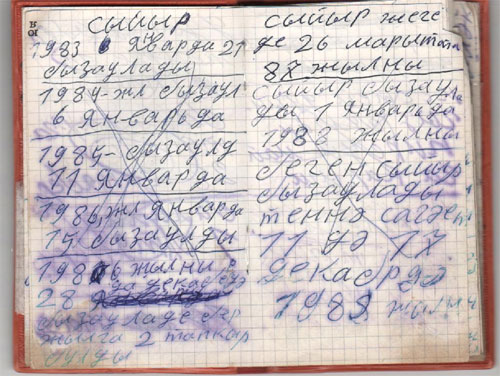 сыйыр
1983 6 январда 21
бызаулады
1984-жл бызаул
6 январьда
1985- бызаулд
11 январда
1986 жл январда
15 бызаулды
1986 жылны
да декаб
28
бызауладе бер
жылга 2 тапкыр
булды
сыйыр жеге
де 26 марытта
87 жылны
сыйыр бызаула
ды 1 январьда
1988 жылны
беген сыйыр
бызаулады
теннә сагәт
11 дә 17
декабрдә
1988 жылы